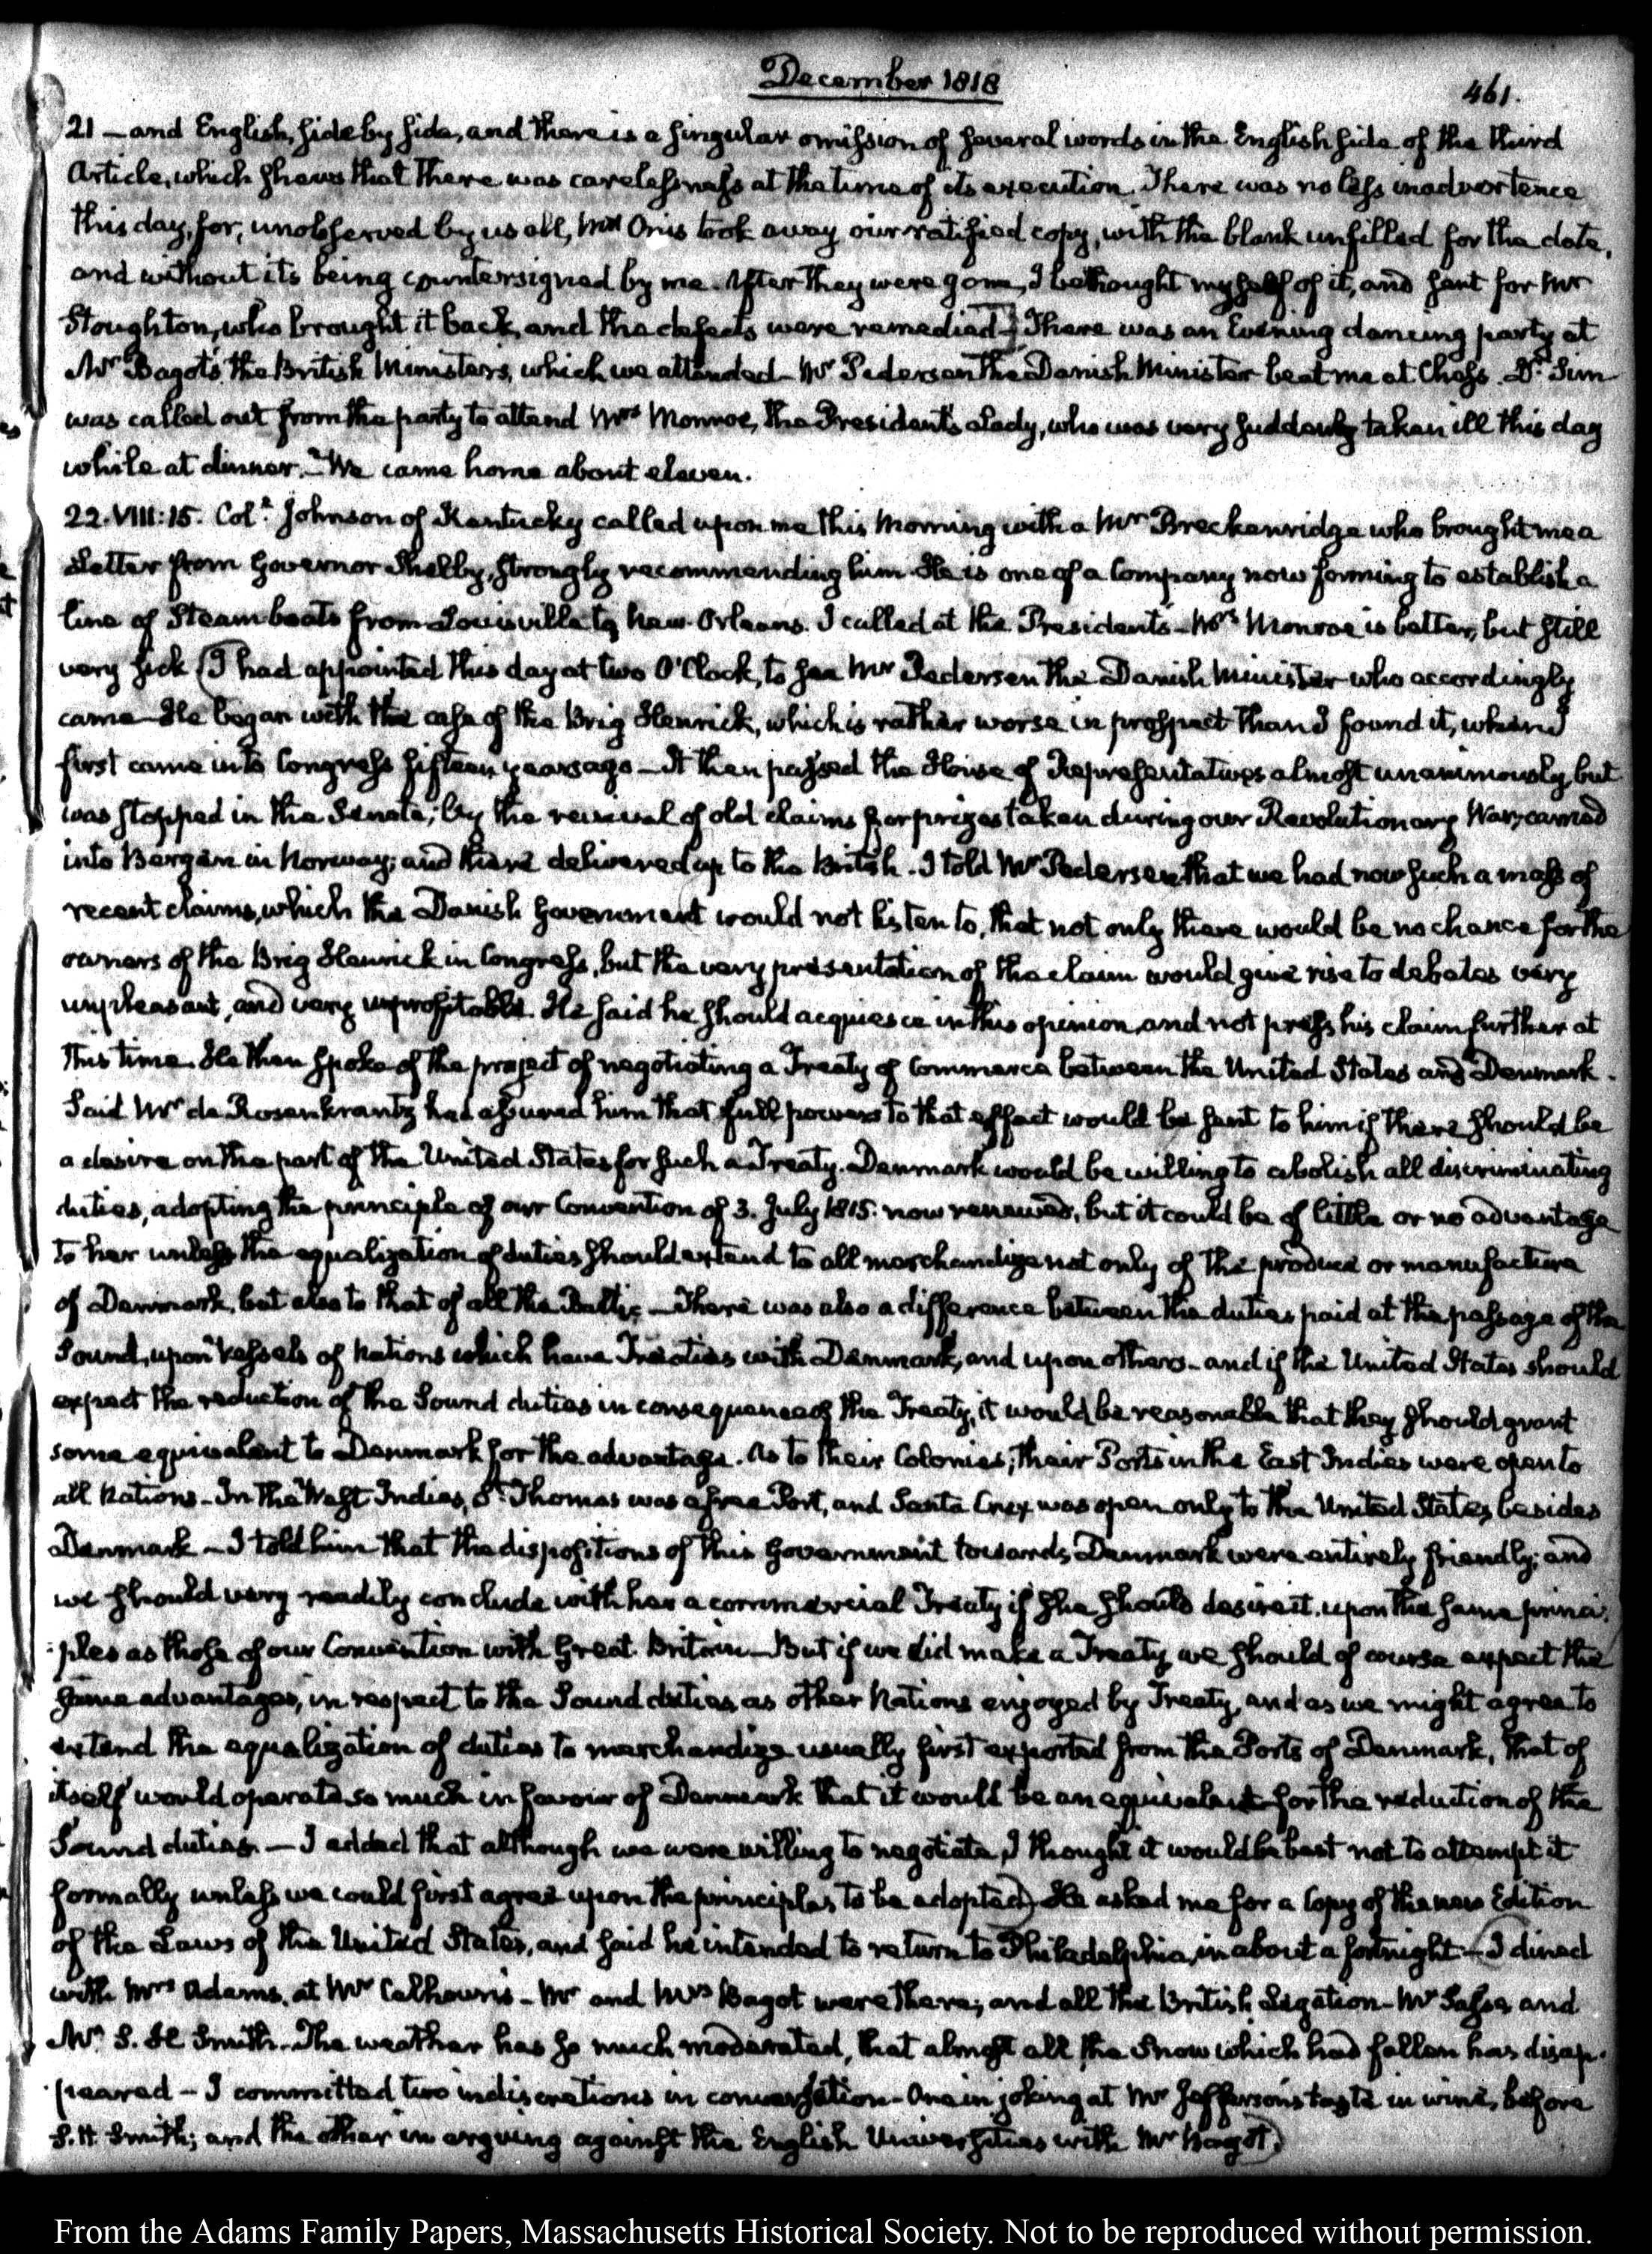 December 1818
461.
21 — and English, side by side, and there is a singular omission of several words in the English side of the third
Article, which shews that there was carelessness at the time of its execution. There was no less inadvertence
this day, for, unobserved by us all, Mr Onis took away our ratified copy, with the blank unfilled for the date,
and without its being countersigned by me. After they were gone, I bethought myself of it, and sent for Mr
Stoughton, who brought it back, and the defects were remedied. There was an Evening dancing party at
Mr Bagot's the British Minister's, which we attended — Mr Pedersen the Danish Minister beat me at Chess. Dr. Sim
was called out from the party to attend Mrs Monroe, the President's Lady, who was very suddenly taken ill this day
while at dinner. — We came home about eleven.
22. VIII:15. Coll. Johnson of Kentucky called upon me this Morning with a Mr Breckenridge who brought me a
Letter from Governor Shelby, strongly recommending him. He is one of a Company now forming to establish a
line of Steam boats from Louisville to New-Orleans. I called at the President's — Mrs Monroe is better, but still
very sick (I had appointed this day at two O'Clock, to see Mr Pedersen the Danish Minister who accordingly
came — He began with the case of the Brig Henrick, which is rather worse in prospect than I found it, when I
first came into Congress fifteen years ago — It then passed the House of Representatives almost unanimously, but
was stopped in the Senate, by the revival of old claims for prizes taken during our Revolutionary War, carried
into Bergen in Norway; and there delivered up to the British. I told Mr Pedersen that we had now such a mass of
recent claims, which the Danish Government would not listen to, that not only there would be no chance for the
owners of the Brig Henrick in Congress, but the very presentation of the claim would give rise to debates very
unpleasant, and very unprofitable. He said he should acquiesce in this opinion, and not press his claim further at
this time. He then spoke of the project of negotiating a Treaty of Commerce between the United States and Denmark.
Said Mr de Rosenkrantz had assured him that full powers to that effect would be sent to him if there should be
a desire on the part of the United States for such a Treaty. Denmark would be willing to abolish all discriminating
duties, adopting the principle of our Convention of 3. July 1815. now renewed, but it could be of little or no advantage
to her unless the equalization of duties should extend to all merchandize not only of the produce or manufacture
of Denmark, but also to that of all the Baltic — There was also a difference between the duties paid at the passage of the
Sound, upon vessels of Nations which have Treaties with Denmark, and upon others — and if the United States should
expect the reduction of the Sound duties in consequence of the Treaty, it would be reasonable that they should grant
some equivalent to Denmark for the advantage. As to their Colonies; their Ports in the East Indies were open to
all Nations — In the West Indies, St. Thomas was a free Port, and Santa Cruz was open only to the United States, besides
Denmark — I told him that the dispositions of this Government towards Denmark were entirely friendly; and
we should very readily conclude with her a commercial Treaty if she should desire it, upon the same princi:
:ples as those of our Convention with Great Britain — But if we did make a Treaty, we should of course expect the
same advantages, in respect to the Sound duties, as other Nations enjoyed by Treaty, and as we might agree to
extend the equalization of duties to merchandize usually first exported from the Ports of Denmark, that of
itself would operate so much in favour of Denmark that it would be an equivalent for the reduction of the
Sound duties. — I added that although we were willing to negotiate, I thought it would be best not to attempt it
formally unless we could first agree upon the principles to be adopted) He asked me for a Copy of the new Edition
of the Laws of the United States, and said he intended to return to Philadelphia, in about a fortnight — (I dined
with Mrs Adams, at Mr Calhoun's — Mr and Mrs Bagot were there; and all the British Legation — Mr and
Mr S. H Smith. — The weather has so much moderated, that almost all the Snow which had fallen has disap-
:peared — I committed two indiscretions in conversation — One in joking at Mr Jefferson's taste in wine, before
S. H. Smith; and the other in arguing against the English Universities with Mr Bagot.)
From the Adams Family Papers, Massachusetts Historical Society. Not to be reproduced without permission.